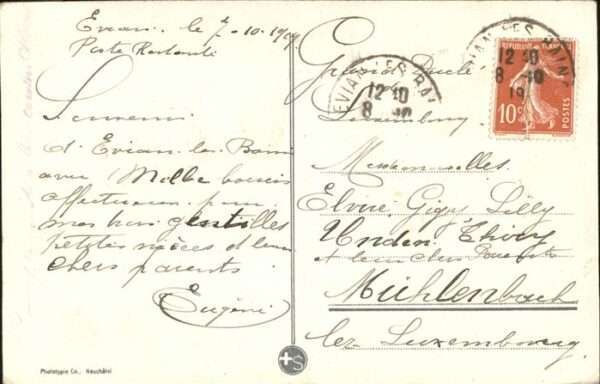 Evian. le 7-10-19
Poste Restante
Souvenir
d'Evian-les-Bains
avec Mille baisers
affectueux pour
mes bien gentilles
petites nièces et leurs
chers parents.
Eugène
Phototypie Co., Neuchâtel
+S
Grand Duché
Luxembourg
Mesdemoiselles
Elvire, Gigy, Lilly
Unden Thivy
et leurs chers Parents
Mühlenbach
lez-Luxembourg
EVIAN LES BAINS
12 40
8 10
EVIAN LES BAINS
12 40
8 10
19
REPUBLIQUE FRANÇAISE
10c
POSTES